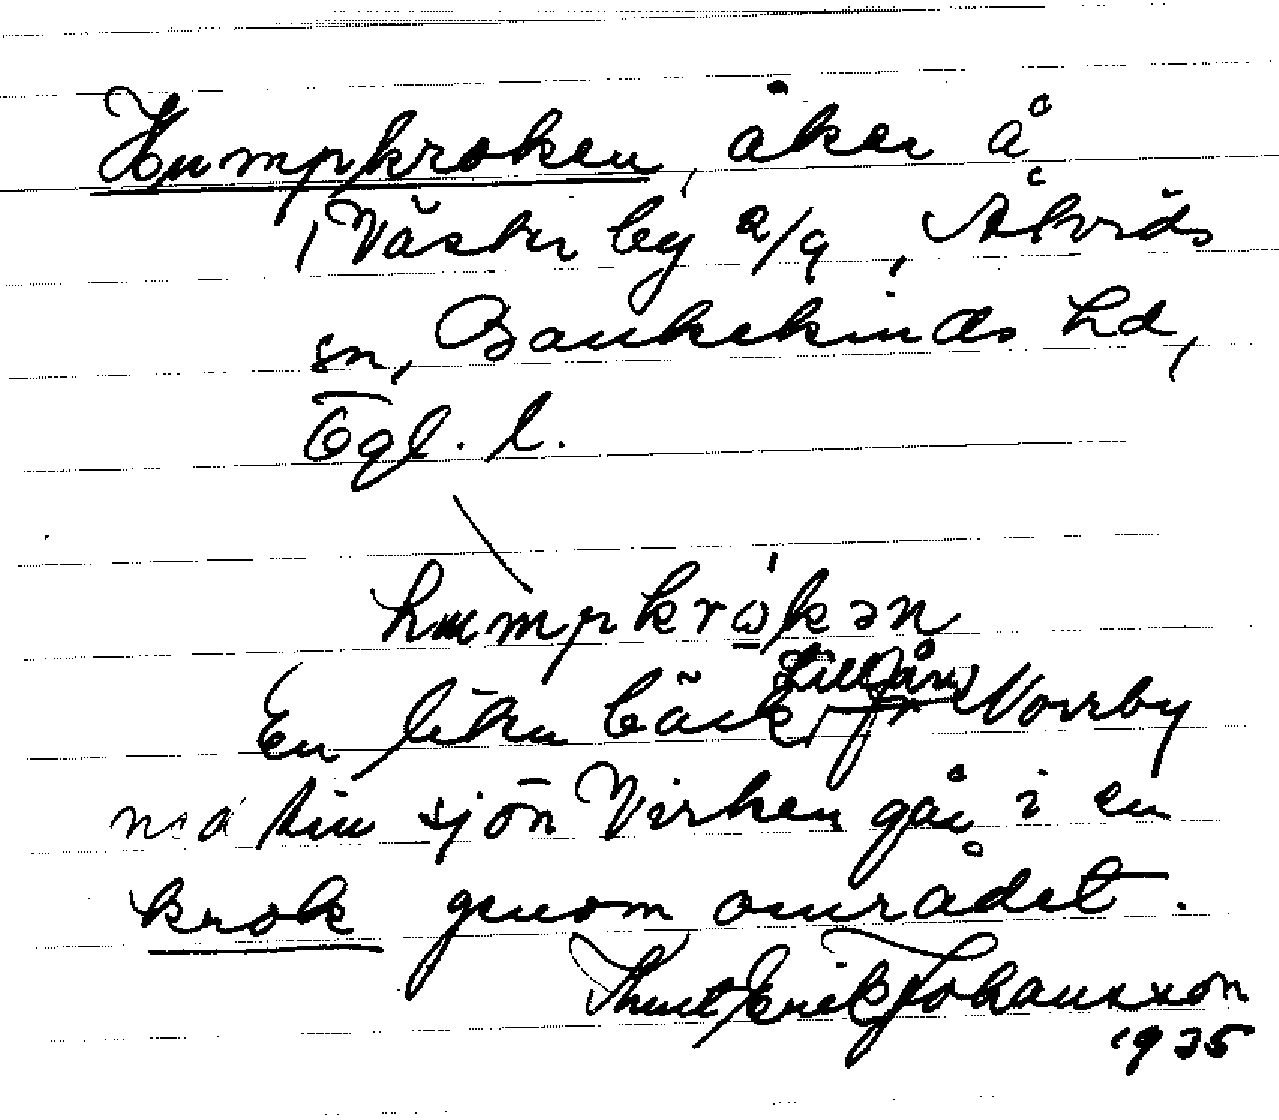 Humpkroken, åker å
Västerby 2/9, Åtvids
sn, Bankekinds hd,
Ögl. l.
humpkrώ̲kən
En liten bäck, Lillån, fr Norrby
mot sjön Virken går i en
krok genom området.
Knut Erik Johansson
1935